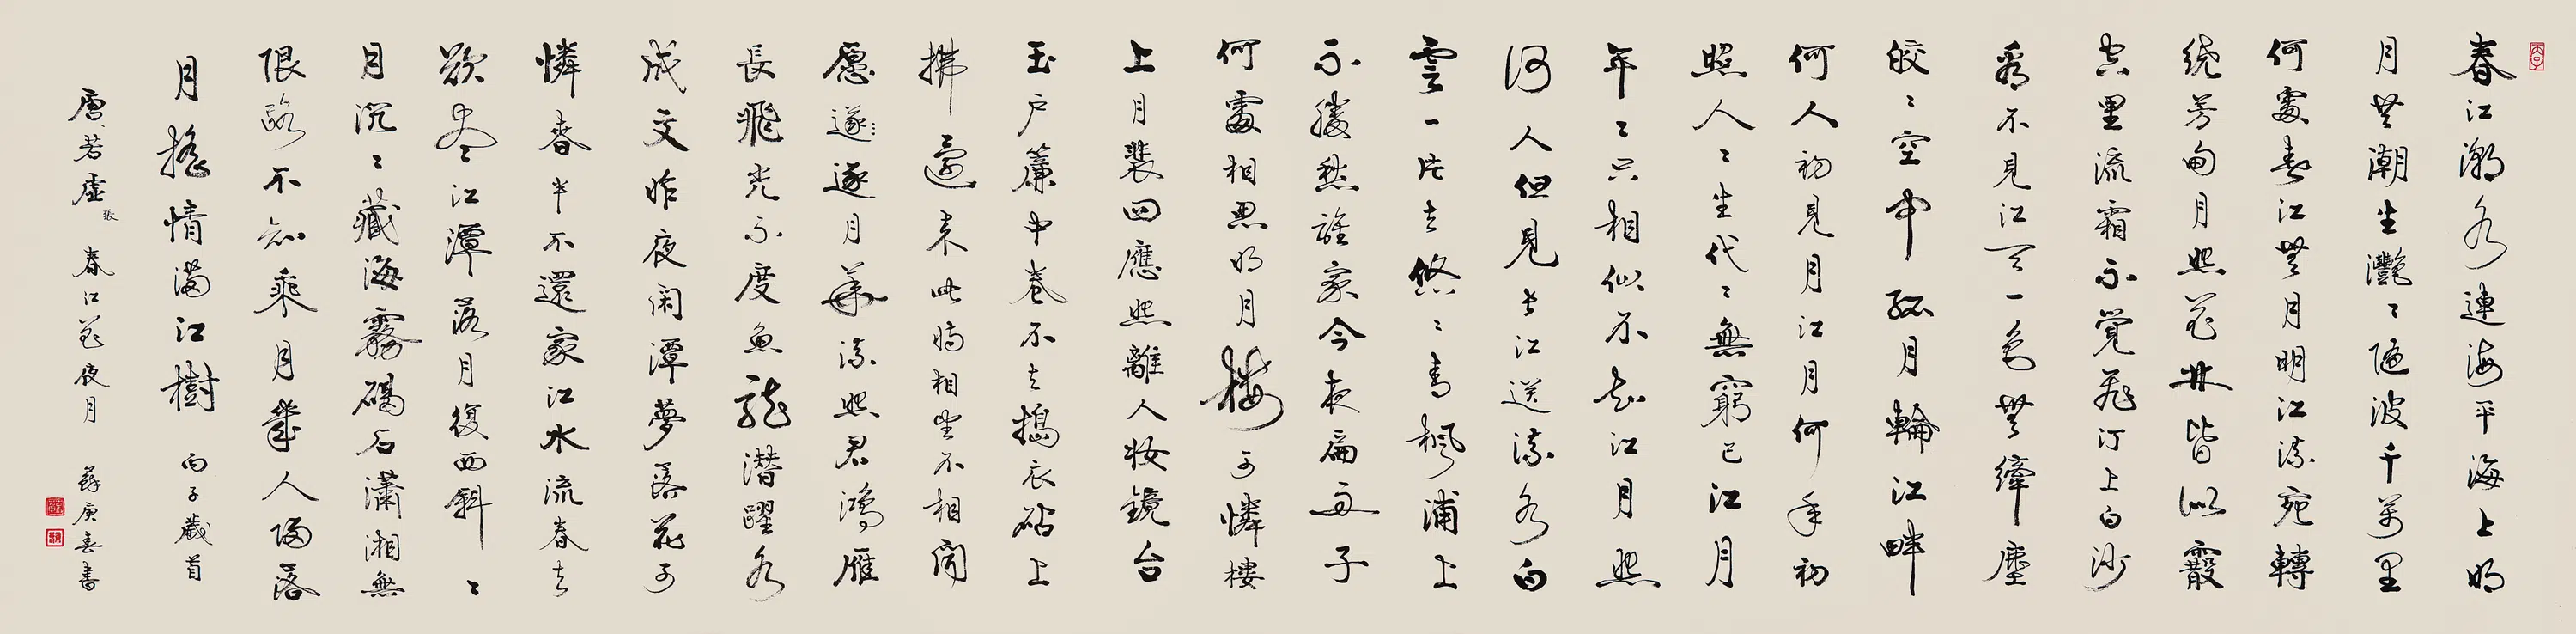 丙子
春江潮水連海平海上明
月共潮生灩〻隨波千萬里
何處春江無月明江流宛轉
繞芳甸月照花林皆似霰
空里流霜不覺飛汀上白沙
看不見江天一色無纖塵
皎〻空中孤月輪江畔
何人初見月江月何年初
照人〻生代〻無窮已江月
年〻只相似不知江月照
何人但見長江送流水白
雲一片去悠〻青楓浦上
不勝愁誰家今夜扁舟子
何處相思明月樓可憐樓
上月裴回應照離人妝鏡台
玉戶簾中卷不去搗衣砧上
拂還来此時相望不相聞
愿遂逐月華流照君鴻雁
長飛光不度魚龍潛躍水
成文昨夜閑潭夢落花可
憐春半不還家江水流春去
欲尽江潭落月復西斜〻
月沉〻藏海霧碣石瀟湘無
限路不知乘月幾人歸落
月搖情滿江樹 丙子歲首
唐若虛張 春江花夜月 蘇庚春書